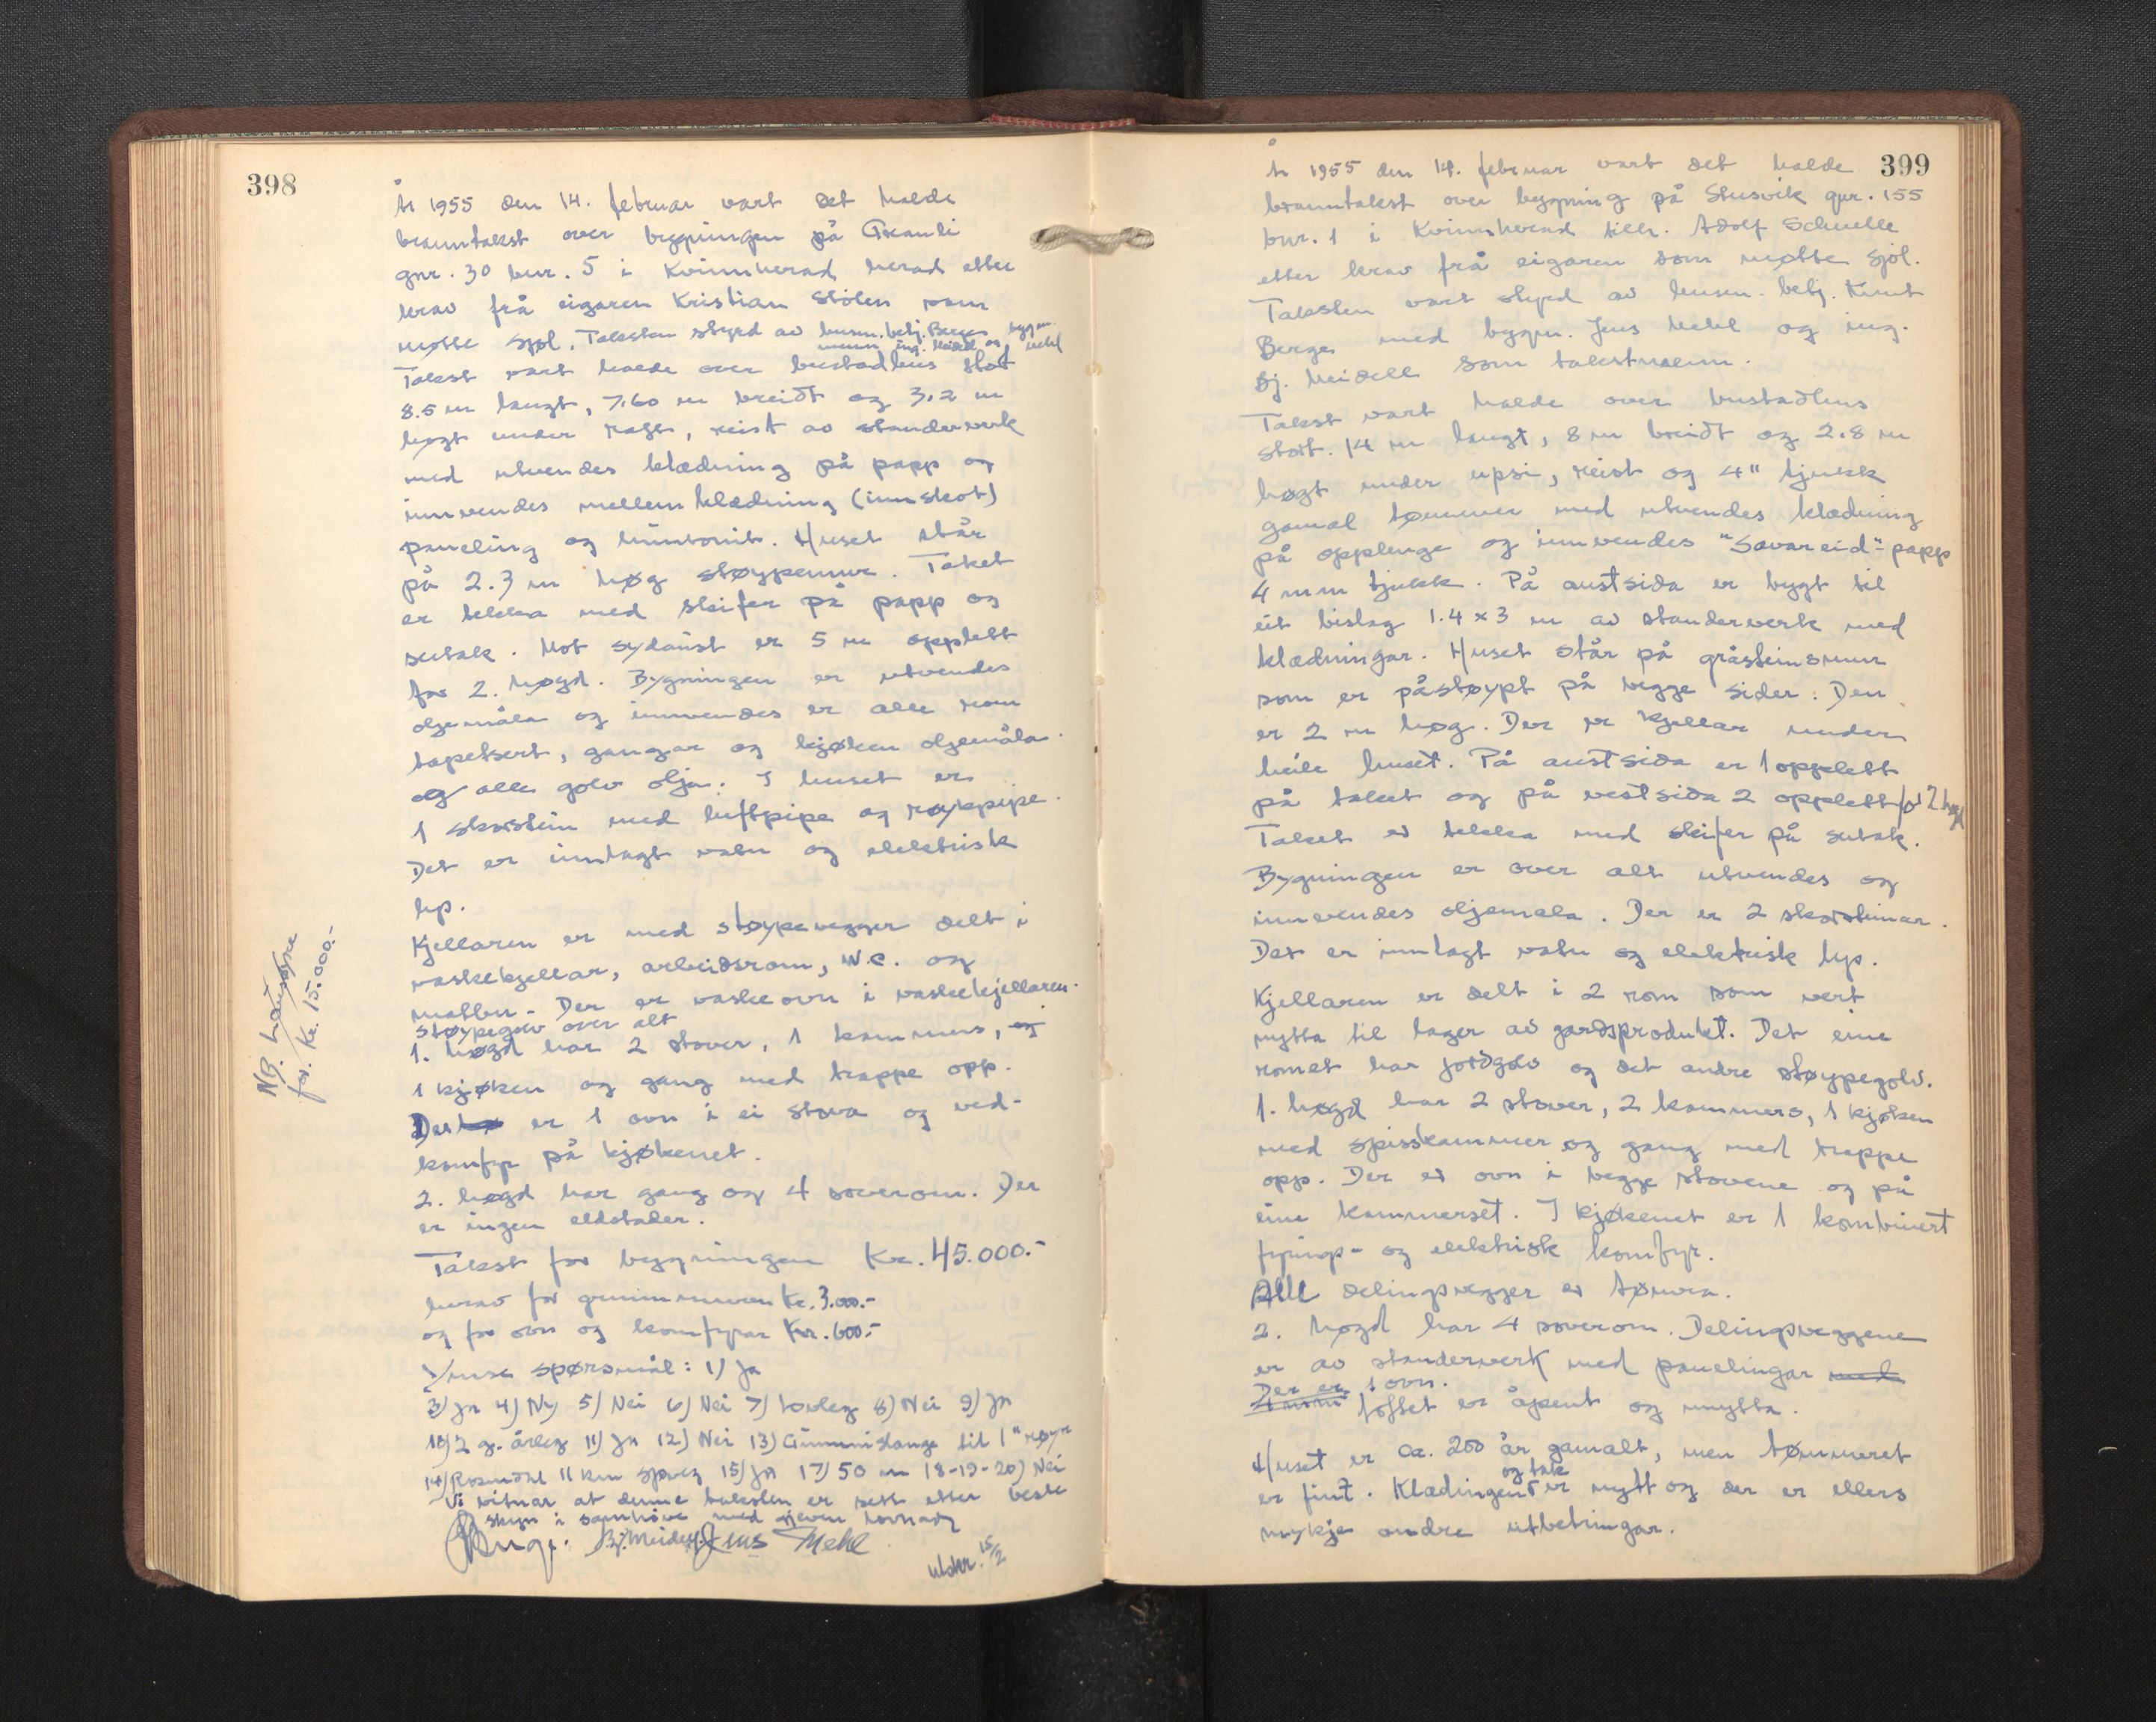 398
År 1955 den 14. februar vart det halde
branntakst over bygningen på Granli
gnr. 30 bnr. 5 i Kvinnherad herad etter
krav frå eigaren Kristian Stölen som
møtte sjøl. Taksten styrd av lensm.betj. Berge bygm.
ing. Meidell og Mehl
Takst vart halde over bustadhus stort
8.5 m langt, 7.60 m breidt og 3.2 m
høgt under raft, reist av standerverk
med utvendes klædning på papp og
innvendes mellemklædning (innskot)
paneling og huntonit. Huset står
på 2.3 m høg støypemur. Taket
er tekka med skifer på papp og
sutak. Mot sydaust er 5 m opplett
for 2. høgd. Bygningen er utvendes
oljemåla og innvendes er alle rom
tapetsert, gangar og kjøken oljemåla.
og alle golv olja. I huset er
1 skorstein med luftpipe og røykpipe.
Det er innlagt vatn og elektrisk
lys.
Kjellaren er med støypevegger delt i
vaskekjellar, arbeidsrom, W.C. og
matbu. Der er vaskeovn i vaskekjellaren.
støypegolv over alt
1. høgd har 2 stover, 1 kammers, og
1 kjøken og gang med trappe opp.
Der er 1 ovn i ei stova og ved-
komfyr på kjøkenet.
2. høgd har gang og 4 soverom. Der
er ingen eldstader.
Takst for bygningen Kr. 45.000.-
herav for grunnmuren Kr. 3.000.-
og for ovn og komfyrar Kr. 600.-
Ymse spørsmål: 1) Ja
3) Ja 4) Ny 5) Nei 6) Nei 7) Lovleg 8) Nei 9) Ja
10) 2 g. årleg 11) Ja 12) Nei 13) Gummislange til 1" røyr
14) Rosendal 11 km 15) Ja 17) 50 m 18-19-20) Nei
Vi vitnar at denne taksten er sett etter beste
skyn i samhøve med gjeven lovnad
Berge. Bj. Meidell Jens Mehl
Utskr. 15/2
NB.
for. Kr. 15.000.-
399
År 1955 den 14. februar vart det halde
branntakst over bygning på Stusvik gnr. 155
bnr. 1 i Kvinnherad tilh. Adolf Schnelle
etter krav frå eigaren som møtte sjøl.
Taksten vart styrd av lensm. betj. Knut
Berge med bygm. Jens Mehl og ing.
Bj. Meidell som takstmenn.
Takst vart halde over bustadhus
stort. 14 m langt, 8 m breidt og 2.8 m
høgt under upsi, reist og 4" tjukk
gamal tømmer med utvendes klædning
på opplenge og innvendes "Savareid"-papp
4 mm tjukk. På austsida er bygt til
eit bislag 1.4 x 3 m av standerverk med
klædningar. Huset står på gråsteinsmur
som er påstøypt på begge sider. Den
er 2 m høg. Der er kjellar under
heile huset. På austsida er 1 opplett
på taket og på vestsida 2 opplett for 2 høgd
Taket er tekka med skifer på sutak.
Bygningen er over alt utvendes og
innvendes oljemala. Der er 2 skorsteinar.
Det er innlagt vatn og elektrisk lys.
Kjellaren er delt i 2 rom som vert
nytta til lager av gardsprodukt. Det eine
romet har jordgolv og det andre støypegolv.
1. høgd har 2 stover, 2 kammers, 1 kjøken
med spisskammer og gang med trappe
opp. Der er ovn i begge stovene og på
eine kammerset. I kjøkenet er 1 kombinert
fyrings- og elektrisk komfyr.
Alle delingsvegger er tømra.
2. høgd har 4 soverom. Delingsveggene
er av standerverk med panelingar med
Der er 1 ovn.
4 mm loftet er åpent og unytta.
Huset er ca. 200 år gamalt, men tømmeret
og tak
er fint. Klædingen er nytt og der er ellers
mykje andre utbetringar.